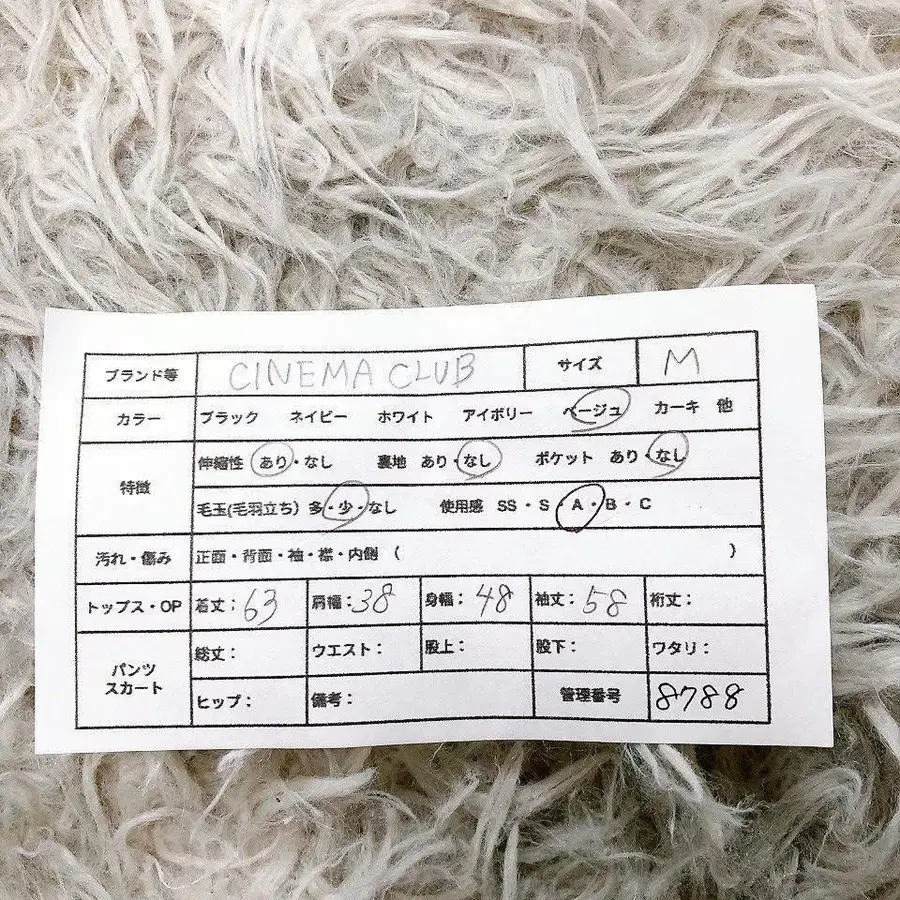 ブランド等 CINEMA CLUB サイズ M
カラー ブラック ネイビー ホワイト アイボリー ベージュ カーキ 他
特徴 伸縮性 あり・なし 裏地 あり・なし ポケット あり・なし
毛玉(毛羽立ち) 多・少・なし 使用感 SS・S・A・B・C
汚れ・傷み 正面・背面・袖・襟・内側 ( )
トップス・OP 着丈: 63 肩幅: 38 身幅: 48 袖丈: 58 裄丈:
パンツ スカート 総丈: ウエスト: 股上: 股下: ワタリ:
ヒップ: 備考: 管理番号 8788